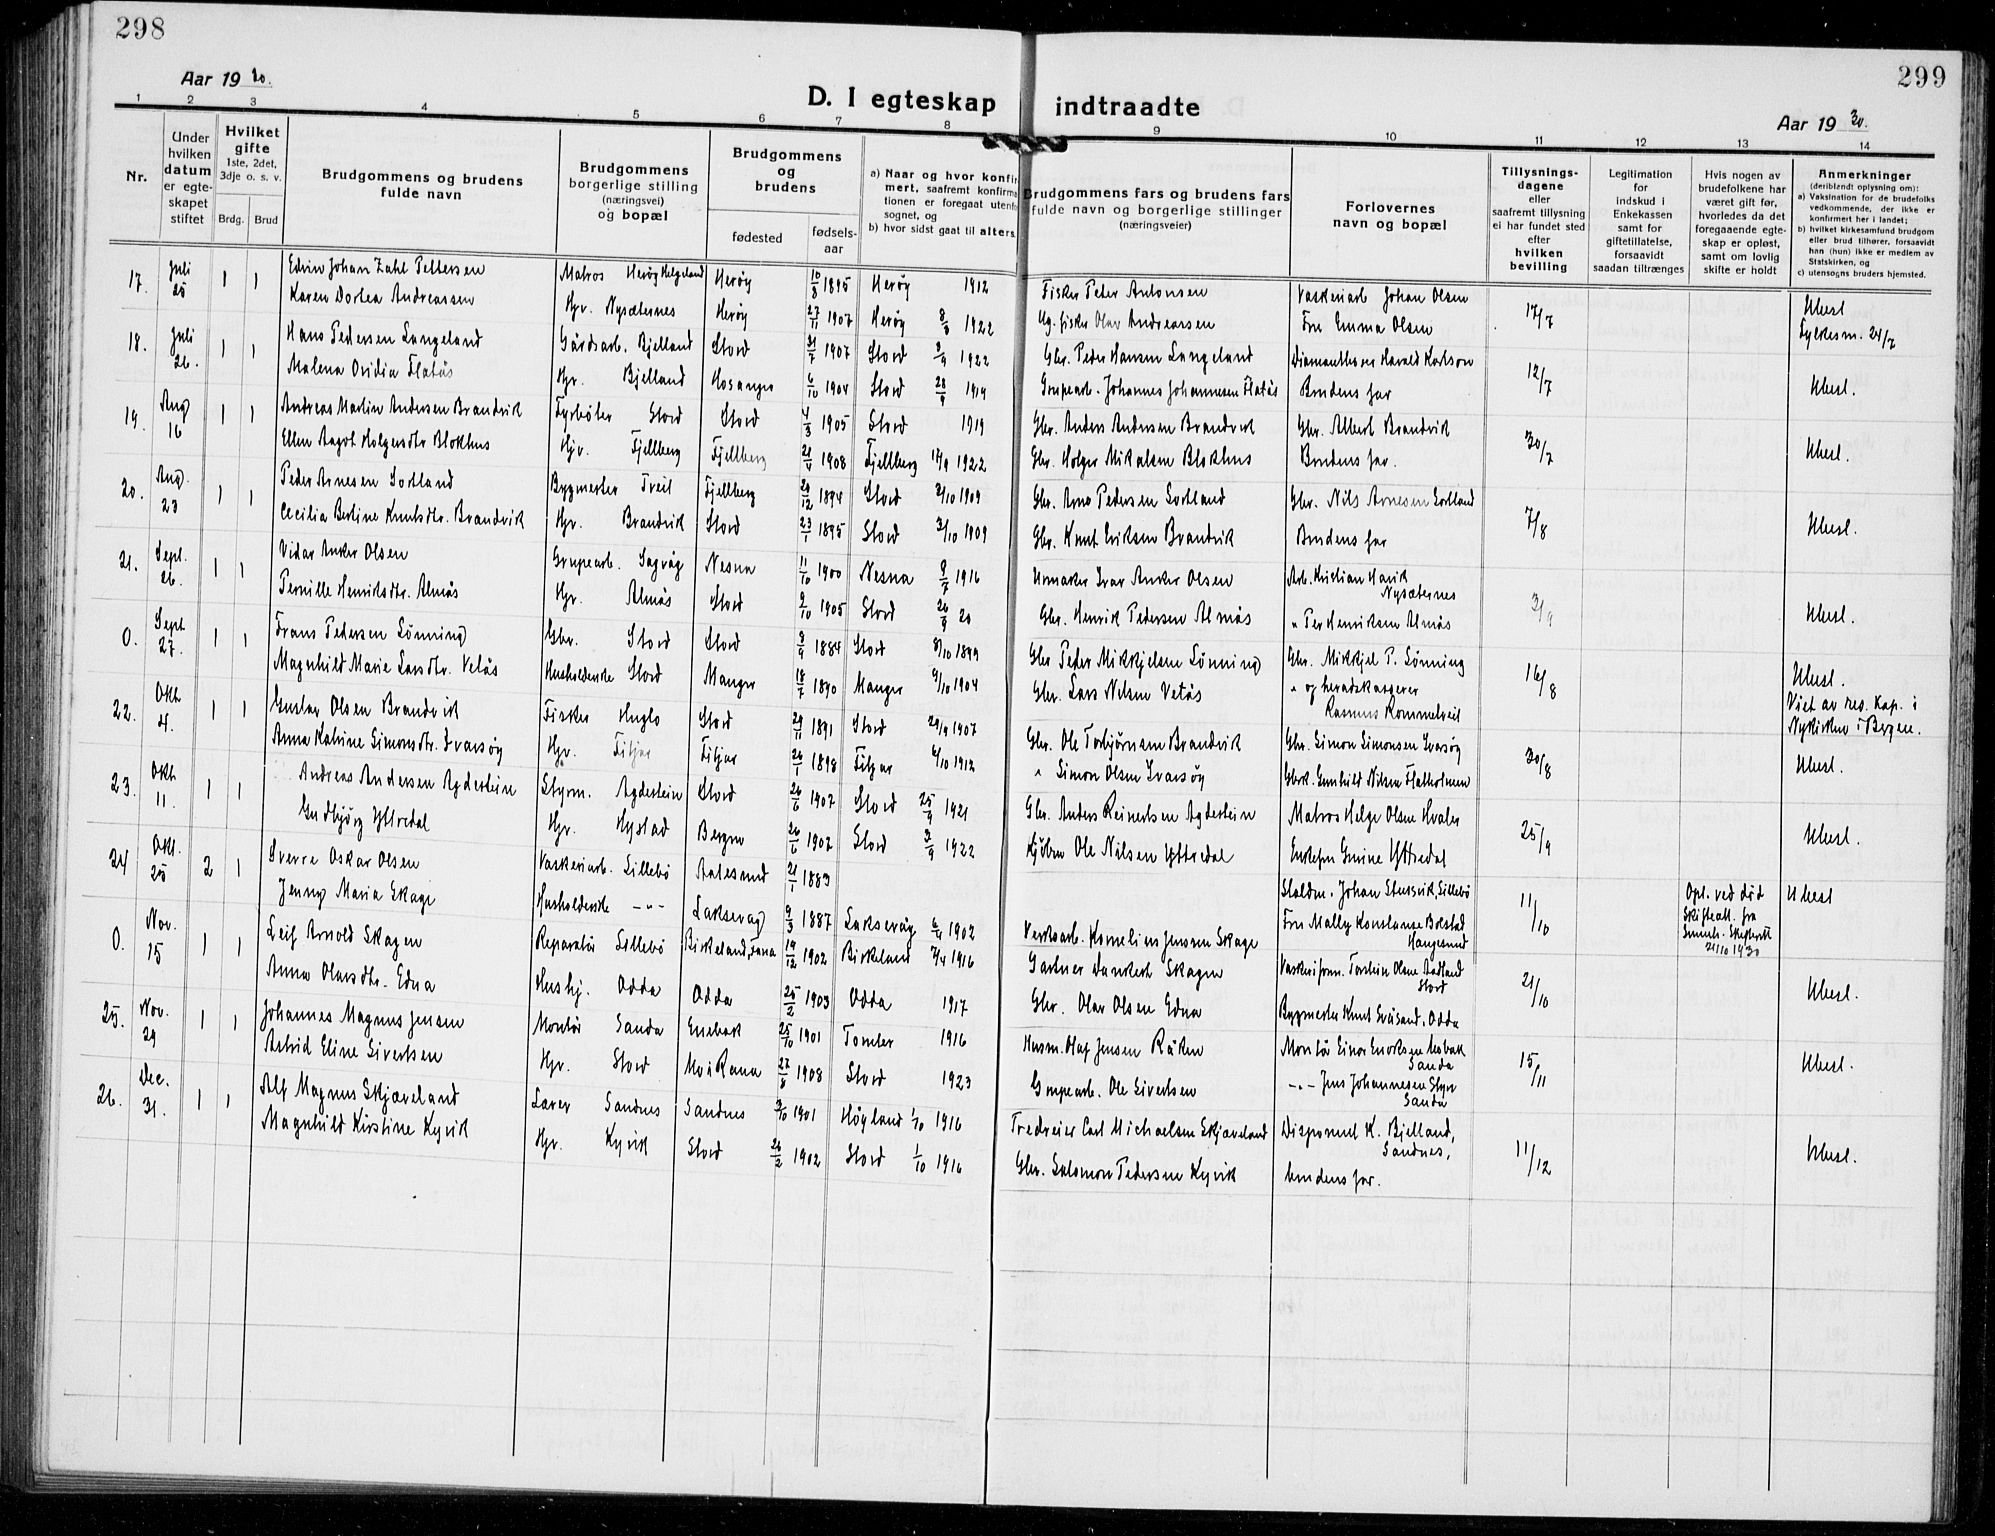 298
299
Aar 19 30.
D. I egteskap indtraadte
Aar 19 30.
1 2 3 4 5 6 7 8 9 10 11 12 13 14
Nr.
Under hvilken datum er egteskapet stiftet
Hvilket gifte 1ste, 2det, 3dje o. s. v.
Brdg. Brud
Brudgommens og brudens fulde navn
Brudgommens borgerlige stilling (næringsvei) og bopæl
Brudgommens og brudens
fødested
fødsels-aar
a) Naar og hvor konfirmert, saafremt konfirmationen er foregaat utenfor sognet, og
b) hvor sidst gaat til alters.
Brudgommens fars og brudens fars fulde navn og borgerlige stillinger (næringsveier)
Forlovernes navn og bopæl
Tillysningsdagene eller saafremt tillysning ei har fundet sted efter hvilken bevilling
Legitimation for indskud i Enkekassen samt for giftetillatelse, forsaavidt saadan tiltrænges
Hvis nogen av brudefolkene har været gift før, hvorledes da det foregaaende egteskap er opløst, samt om lovlig skifte er holdt
Anmerkninger (deriblandt oplysning om):
a) Vaksination for de brudefolks vedkommende, der ikke er konfirmert her i landet;
b) hvilket kirkesamfund brudgom eller brud tilhører, forsaavidt han (hun) ikke er medlem av Statskirken, og
c) utensogns bruders hjemsted.
17. Juli 25 1 1 Edvin Johan Zahl Pettersen Matros Herøy Helgeland Herøy 10/8 1895 Herøy 1912 Fisker Peter Antonsen Vaskeriarb Johan Olsen 17/7 Ubesl
Karen Dortea Andreassen Hjv. Nysæternes Herøy 27/11 1907 Herøy 8/8 1922 Ug. fisker Olav Andreassen Fru Emma Olsen Fylkesm. 24/7
18. Juli 26. 1 1 Hans Pedersen Langeland Gårdsarb. Bjelland Stord 31/7 1907 Stord 3/9 1922 Gbr. Peder Hansen Langeland Diamantborer Harald Karlson 12/7 Ubesl.
Malena Ovidia Flatås Hjv. Bjelland Hosanger 6/10 1904 Stord 28/9 1919 Grupearb. Johannes Johannessen Flatås Brudens far
19. Aug 16 1 1 Andreas Martin Andersen Brandvik Fyrbøter Stord Stord 4/3 1905 Stord 1919 Gbr. Anders Andersen Brandvik Gbr. Albert Brandvik 30/7 Ubesl.
Ellen Aagot Holgersdtr Blokhus Hjv. Fjellberg Fjellberg 1908 Fjellberg 17/9 1922 Gbr. Holger Mikalsen Blokhus Brudens far.
20. Aug. 23 1 1 Peder Arnesen Sortland Bygmester Tveit Fjellberg 29/12 1894 Stord 3/10 1909 Gbr. Arne Pedersen Sortland Gbr. Nils Arnesen Sortland 7/8 Ubesl.
Cecilia Bertine Knutsdtr. Brandvik Hjv. Brandvik Stord 23/1 1895 Stord 3/10 1909 Gbr. Knut Eriksen Brandvik Brudens far
21. Sept. 26. 1 1 Vidar Anker Olsen Grupearb. Sagvåg Nesna 11/10 1900 Nesna 9/7 1916 Urmaker Ivar Anker Olsen Arb. Kristian Havik Nysæternes 3/9 Ubesl.
Pernille Henriksdtr. Almås Hjv. Almås Stord 9/10 1905 Stord 26/9 20 Gbr. Henrik Pedersen Almås „ Per Henriksen Almås
0. Sept 27. 1 1 Frans Pedersen Lønning Gbr. Stord Stord 8/9 1884 Stord 8/10 1899 Gbr Peder Mikkjelsen Lønning Gbr. Mikkjel P. Lønning 16/8 Ubesl.
Magnhild Marie Larsdtr. Vetås Husholderske Stord Manger 18/7 1890 Manger 9/10 1904 Gbr. Lars Nilsen Vetås „ og heradskasserer Rasmus Rommetveit Viet av res. kap. i Nykirken i Bergen.
22. Okt 4. 1 1 Gustav Olsen Brandvik Fisker Huglo Stord 29/11 1891 Stord 29/9 1907 Gbr. Ole Torbjørnsen Brandvik Gbr. Simon Simonsen Ivarsøy 30/8 Ubesl.
Anna Katrine Simonsdtr. Ivarsøy Hjv. Fitjar Fitjar 26/1 1898 Fitjar 6/10 1912 „ Simon Olsen Ivarsøy Gbrk. Gunhild Nilsen Flatholmen
23. Okt 11. 1 1 Andreas Andersen Agdestein Styrm. Agdestein Stord 26/6 1907 Stord 25/9 1921 Gbr. Anders Reinertsen Agdestein Matros Helge Olsen Hvaler 25/9 Ubesl.
Gudbjørg Yttredal Hjv. Hystad Bergen 26/6 1907 Stord 3/9 1922 Kjøbm Ole Nilsen Yttredal Enkefru Gmine Yttredal
24 Okt. 25 2 1 Sverre Oskar Olsen Vaskeriarb. Lillebø Aalesund 21/1 1883 Staldm. Johan Stusvik, Lillebø 11/10 Opl. ved død Skifteatt. fra Sunnh. Skifterett 21/10 1930 Ubesl
Jenny Maria Skage Husholderske –„– Laksevåg 9/3 1887 Laksevåg 6/4 1902 Verksarb. Kornelius Jensen Skage Fru Mally Konstanse Bolstad Haugesund
0. Nov. 15 1 1 Leif Arnold Skagen Reparatør Lillebø Birkeland, Fana 19/12 1902 Birkeland 7/4 1916 Gartner Dankert Skagen Vaskeriform. Torstein Olsen Aadland Stord 21/10 Ubesl.
Anna Olavsdtr. Edna Hushj. Odda Odda 25/2 1903 Odda 1917 Gbr. Olav Olsen Edna Bygmester Knut Sveisand, Odda
25. Nov. 29 1 1 Johannes Magnus Jensen Montør Sanda Enebak 25/10 1901 Tomter 1916 Husm. Olaf Jensen Råken Montør Einar Enoksen Mobak Sanda 15/11 Ubesl.
Astrid Eline Sivertsen Hjv. Stord Mo i Rana 27/8 1908 Stord 1923 Grupearb. Ole Sivertsen –„– Jens Johannesen Styve Sanda
26. Dec. 31. 1 1 Alf Magnus Skjæveland Lærer Sandnes Sandnes 3/10 1901 Høyland 1/10 1916 Tredreier Carl Michaelsen Skjæveland Disponent K. Bjelland, Sandnes, 11/12 Ubesl.
Magnhild Kirstine Kyvik Hjv. Kyvik Stord 26/2 1902 Stord 1/10 1916 Gbr. Salomon Pedersen Kyvik brudens far.